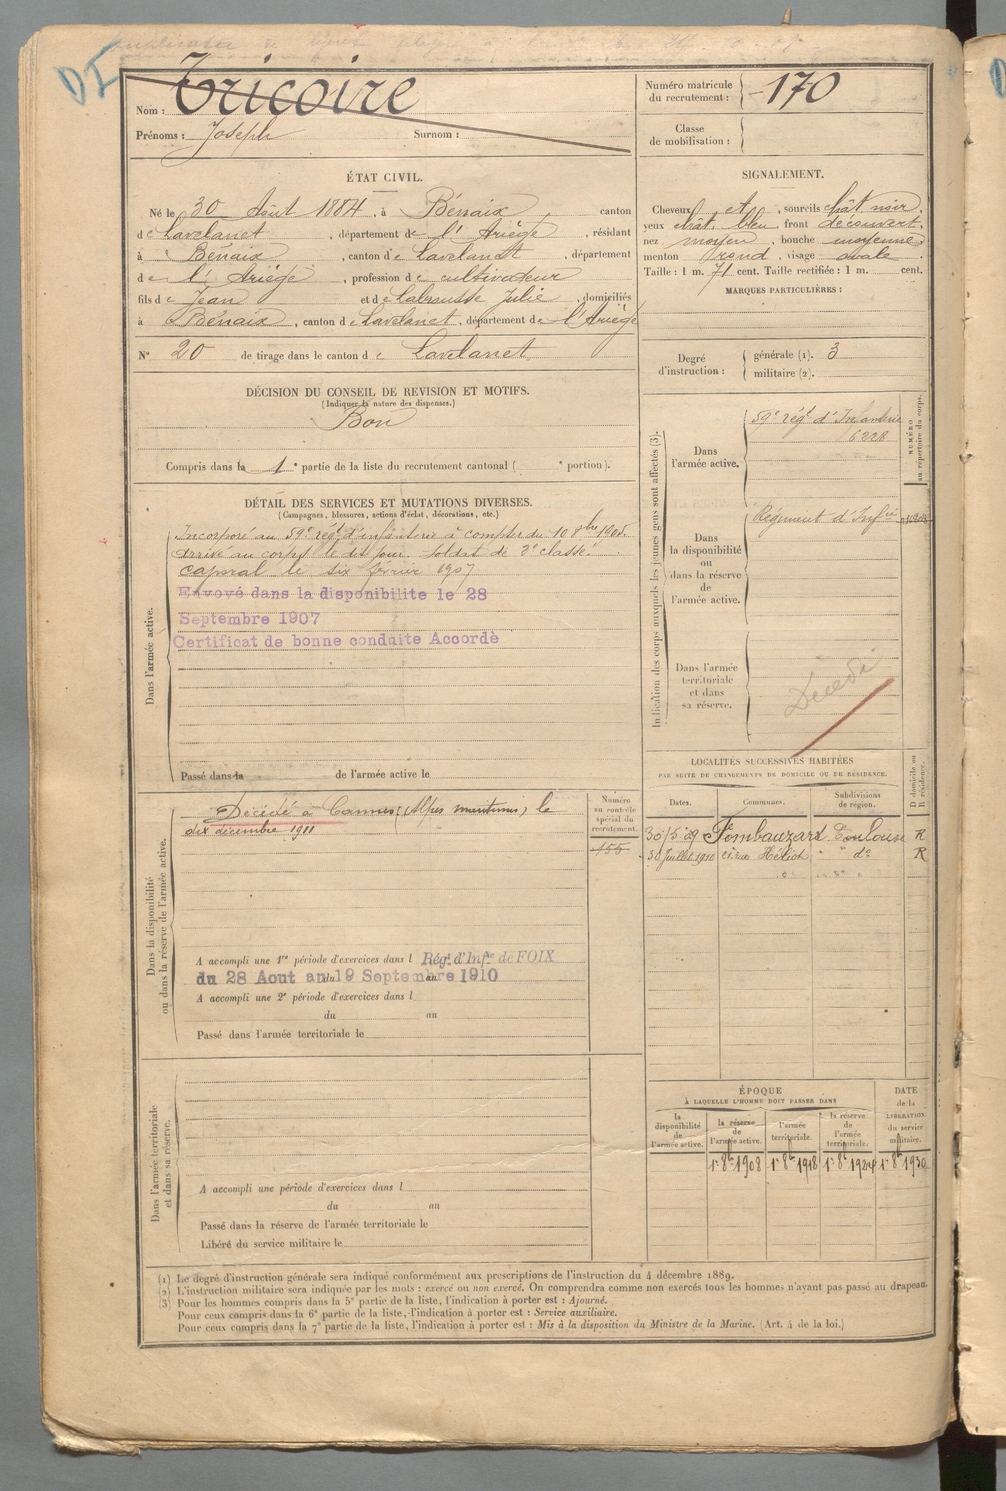 DI
Nom : Tricoire
Prénoms : Joseph Surnom :
Numéro matricule du recrutement : 170
Classe de mobilisation :
ÉTAT CIVIL.
Né le 30 Août 1884, à Bénaix canton
de Lavelanet, département de l'Ariège, résidant
à Bénaix, canton de Lavelanet, département
de l'Ariège, profession de cultivateur
fils de Jean et de Labrousse Julie, domiciliés
à Bénaix, canton de Lavelanet, département de l'Ariège
N° 20 de tirage dans le canton de Lavelanet
SIGNALEMENT.
Cheveux et, sourcils chât noir,
yeux chât. bleu, front découvert,
nez moyen, bouche moyenne,
menton rond, visage ovale
Taille : 1 m. 71 cent. Taille rectifiée : 1 m. cent.
MARQUES PARTICULIÈRES :
Degré d'instruction :
générale (1). 3
militaire (2).
DÉCISION DU CONSEIL DE REVISION ET MOTIFS.
(Indiquer la nature des dispenses.)
Bon
Compris dans la 1e partie de la liste du recrutement cantonal ( e portion).
DÉTAIL DES SERVICES ET MUTATIONS DIVERSES.
(Campagnes, blessures, actions d'éclat, décorations, etc.)
Dans l'armée active.
Incorporé au 59e régt d'infanterie à compter du 10 8bre 1905.
Arrivé au corps le dit jour. Soldat de 2e classe.
Caporal le six février 1907
Envoyé dans la disponibilite le 28
Septembre 1907
Certificat de bonne conduite Accordè
Passé dans la de l'armée active le
Indication des corps auxquels les jeunes gens sont affectés (3).
NUMÉRO au répertoire du corps.
Dans l'armée active.
59e régt d'Infanterie
6228
Dans la disponibilité ou dans la réserve de l'armée active.
Régiment d'Infrie
Dans l'armée territoriale et dans sa réserve.
Décédé
LOCALITÉS SUCCESSIVES HABITÉES
PAR SUITE DE CHANGEMENTS DE DOMICILE OU DE RÉSIDENCE.
D domicile ou R résidence.
Dates. Communes. Subdivisions de région.
30/5/09 Fombauzard Toulouse R
30 Juillet 1910 rue Héliot " do R
Dans la disponibilité ou dans la réserve de l'armée active.
Numéro au contrôle spécial du recrutement.
155
Décédé à Cannes (Alpes maritimes) le
dix décembre 1911
A accompli une 1re période d'exercices dans l Régt. d'Infie de FOIX
du 28 Aout au 19 Septembre 1910
A accompli une 2e période d'exercices dans l
du au
Passé dans l'armée territoriale le
Dans l'armée territoriale et dans sa réserve.
A accompli une période d'exercices dans l
du au
Passé dans la réserve de l'armée territoriale le
Libéré du service militaire le
ÉPOQUE
À LAQUELLE L'HOMME DOIT PASSER DANS
la disponibilité de l'armée active.
la réserve de l'armée active.
l'armée territoriale.
la réserve de l'armée territoriale.
DATE de la LIBÉRATION du service militaire.
1r 8bre 1908 1r 8bre 1918 1r 8bre 1924 1r 8bre 1930
(1) Le degré d'instruction générale sera indiqué conformément aux prescriptions de l'instruction du 4 décembre 1889.
(2) L'instruction militaire sera indiquée par les mots : exercé ou non exercé. On comprendra comme non exercés tous les hommes n'ayant pas passé au drapeau.
(3) Pour les hommes compris dans la 5e partie de la liste, l'indication à porter est : Ajourné.
Pour ceux compris dans la 6e partie de la liste, l'indication à porter est : Service auxiliaire.
Pour ceux compris dans la 7e partie de la liste, l'indication à porter est : Mis à la disposition du Ministre de la Marine. (Art. 4 de la loi.)